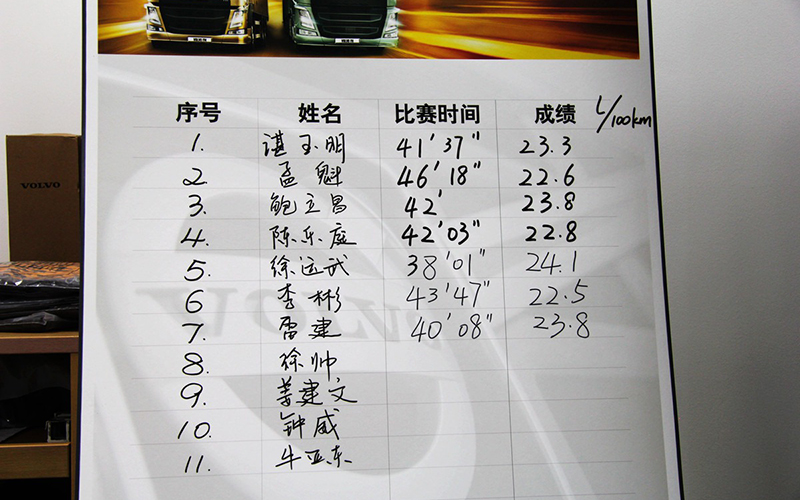 序号 姓名 比赛时间 成绩 L/100km
1. 谌玉明 41'37" 23.3
2. 孟魁 46'18" 22.6
3. 鲍立昌 42' 23.8
4. 陈乐庭 42'03" 22.8
5. 徐远武 38'01" 24.1
6. 李彬 43'47" 22.5
7. 雷建 40'08" 23.8
8. 徐帅
9. 姜建文
10. 钟威
11. 牛亚东
VOLVO
VOLVO